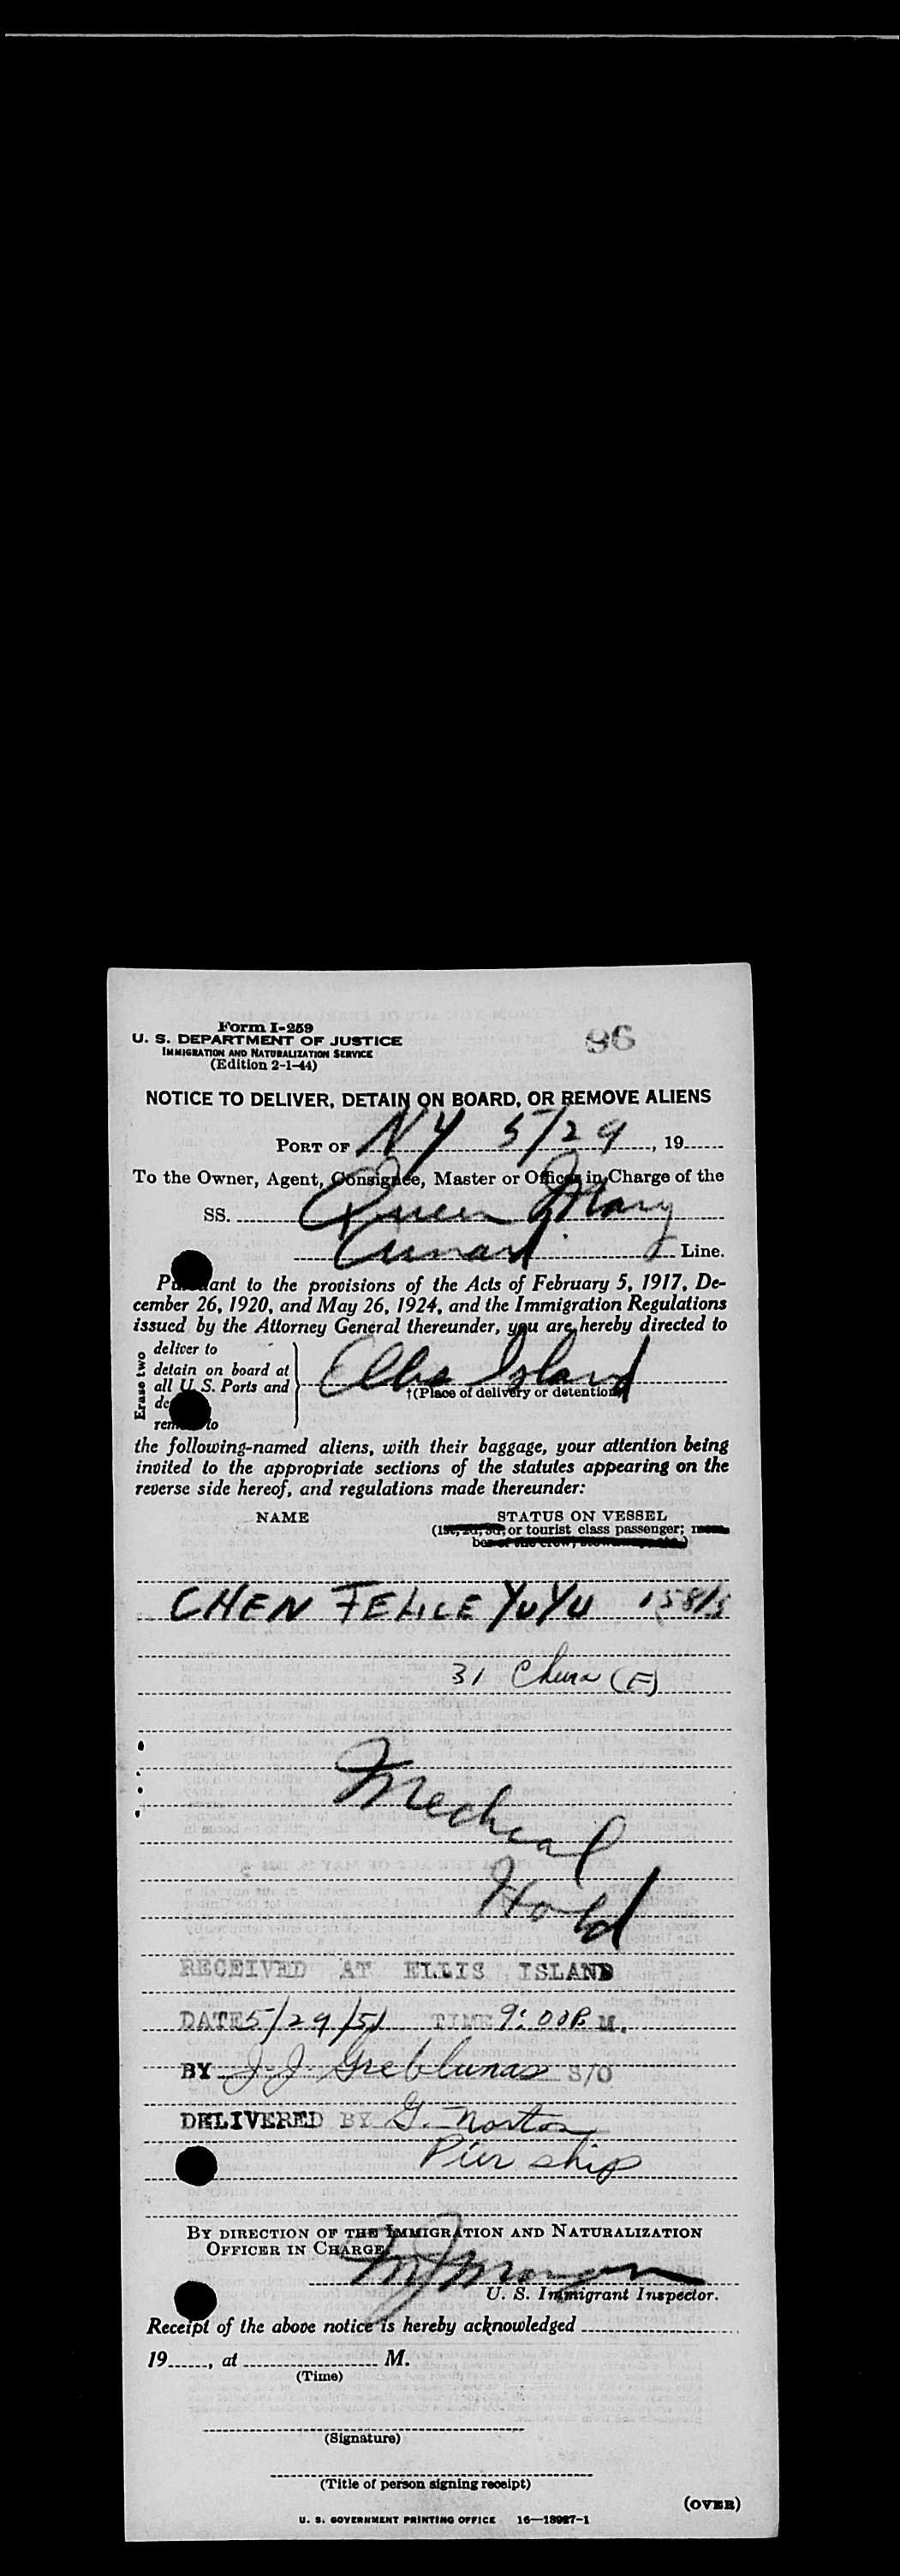 Form I-259
U. S. DEPARTMENT OF JUSTICE
IMMIGRATION AND NATURALIZATION SERVICE
(Edition 2-1-44)
96
NOTICE TO DELIVER, DETAIN ON BOARD, OR REMOVE ALIENS
PORT OF NY 5/29, 19
To the Owner, Agent, Consignee, Master or Officer in Charge of the
SS. Queen Mary
Cunard Line.
Pursuant to the provisions of the Acts of February 5, 1917, De-
cember 26, 1920, and May 26, 1924, and the Immigration Regulations
issued by the Attorney General thereunder, you are hereby directed to
Erase two
deliver to
detain on board at
all U. S. Ports and
de
remove to
Ellis Island
†(Place of delivery or detention)
the following-named aliens, with their baggage, your attention being
invited to the appropriate sections of the statutes appearing on the
reverse side hereof, and regulations made thereunder:
NAME
STATUS ON VESSEL
(1st, 2d, 3d, or tourist class passenger; mem-
ber of the crew, stowaway, etc.)
CHEN FELICE YUYU 158/5
31 China (F)
Medical
Hold
RECEIVED AT ELLIS ISLAND
DATE 5/29/51 TIME 9:00 P. M.
BY J. J. Greblunas S/O
DELIVERED BY G. Norton
Pier ship
BY DIRECTION OF THE IMMIGRATION AND NATURALIZATION
OFFICER IN CHARGE
U. S. Immigrant Inspector.
Receipt of the above notice is hereby acknowledged
19, at M.
(Time)
(Signature)
(Title of person signing receipt)
(OVER)
U. S. GOVERNMENT PRINTING OFFICE 16—18987-1